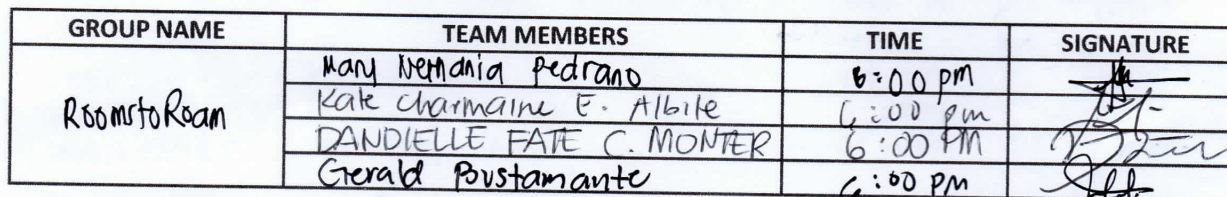 GROUP NAME TEAM MEMBERS TIME SIGNATURE
RoomstoRoam
Mary Nemdnia Pedrano 6:00 pm
Kate Charmaine E. Albite 6:00 pm
DANDIELLE FATE C. MONTER 6:00 PM
Gerald Bustamante 6:00 PM